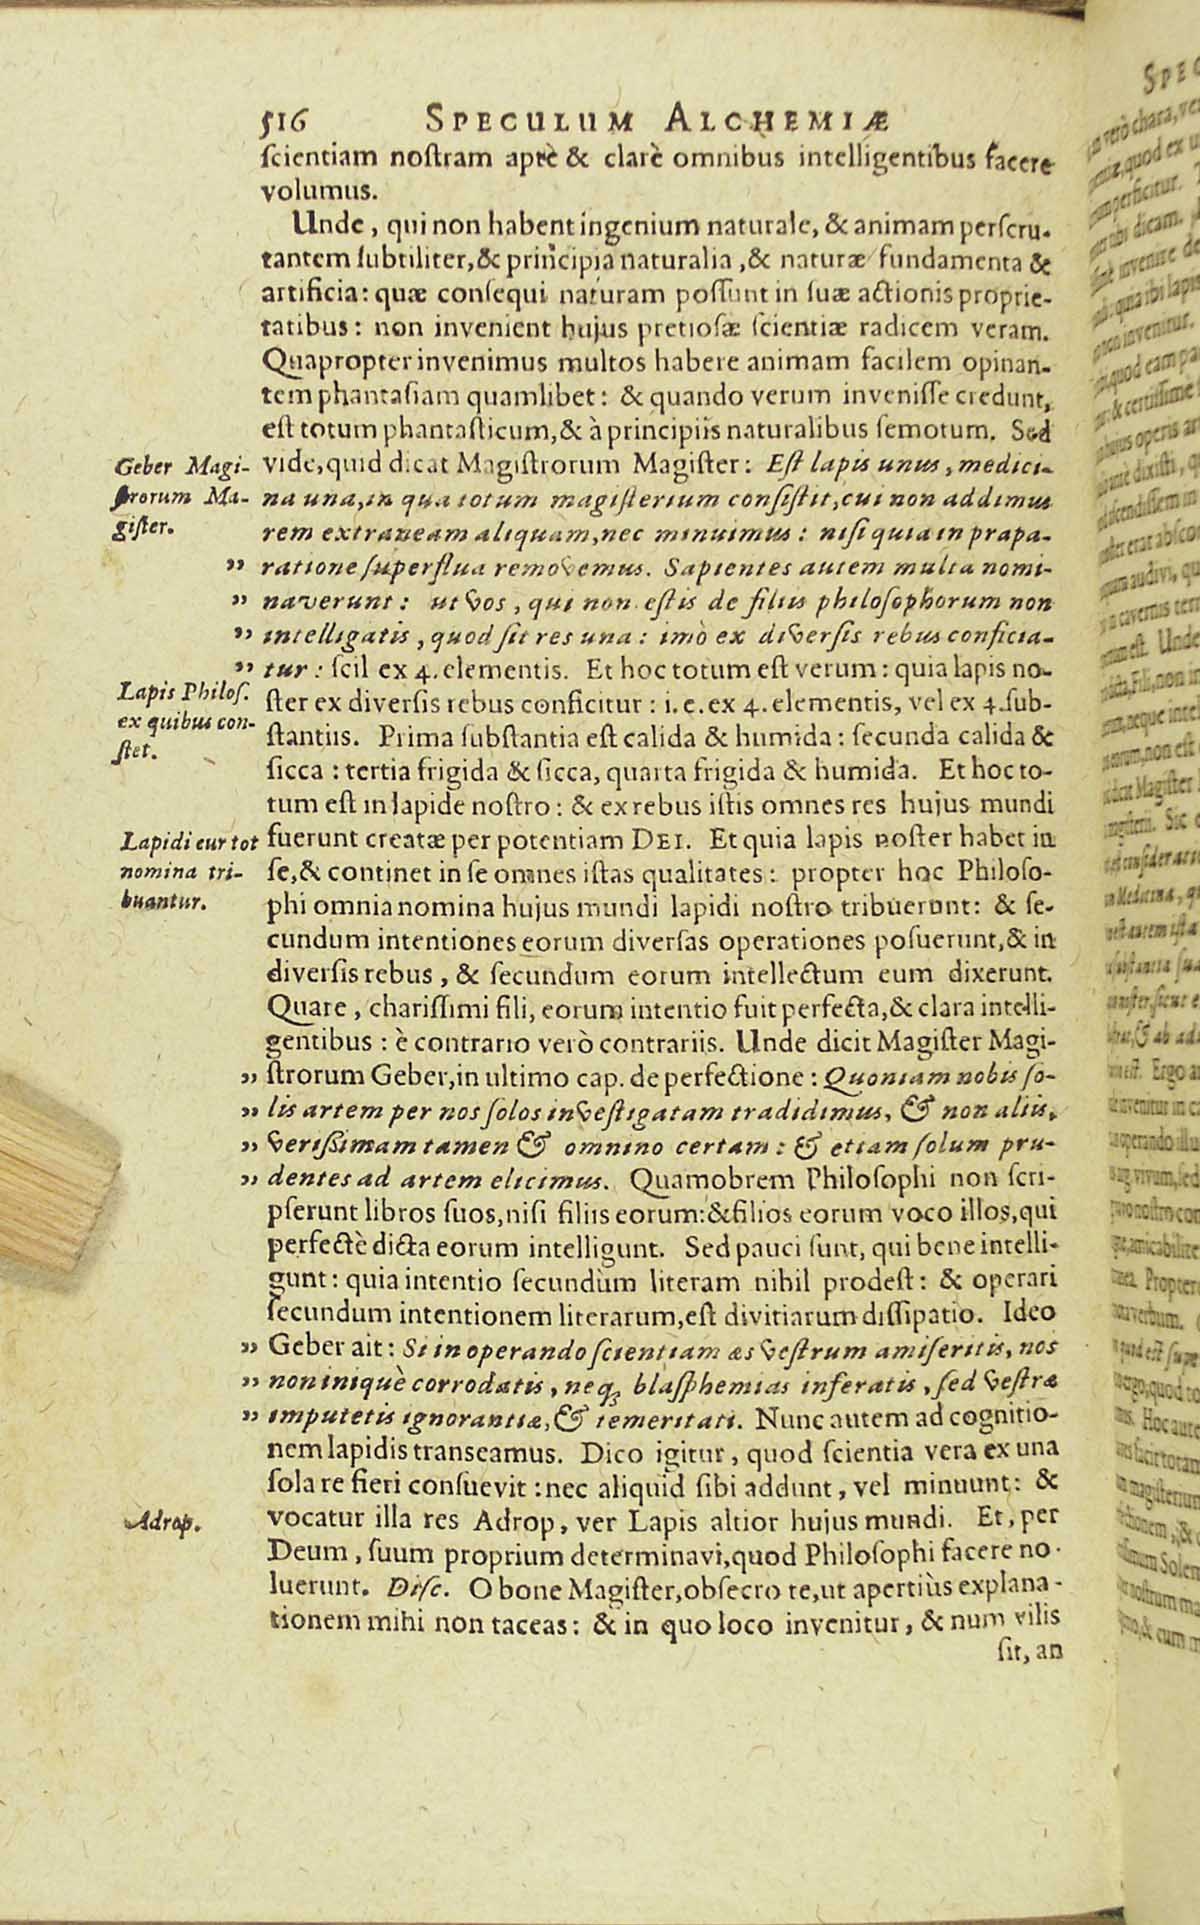 516 SPECULUM ALCHEMIÆ
scientiam nostram aptè & clarè omnibus intelligentibus facere
volumus.
Unde, qui non habent ingenium naturale, & animam perscru-
tantem subtiliter, & principia naturalia, & naturæ fundamenta &
artificia: quæ consequi naturam possunt in suæ actionis proprie-
tatibus: non invenient hujus pretiosæ scientiæ radicem veram.
Quapropter invenimus multos habere animam facilem opinan-
tem phantasiam quamlibet: & quando verum invenisse credunt,
est totum phantasticum, & à principiis naturalibus semotum. Sed
vide, quid dicat Magistrorum Magister: Est lapis unus, medici-
na una, in qua totum magisterium consistit, cui non addimus
rem extraneam aliquam, nec minuimus: nisi quia in præpa-
„ ratione superflua removemus. Sapientes autem multa nomi-
„ naverunt: ut vos, qui non estis de filiis philosophorum non
„ intelligatis, quod sit res una: imò ex diversis rebus conficia-
„ tur: scil ex 4. elementis. Et hoc totum est verum: quia lapis no-
ster ex diversis rebus conficitur: i. e. ex 4. elementis, vel ex 4. sub-
stantiis. Prima substantia est calida & humida: secunda calida &
sicca: tertia frigida & sicca, quarta frigida & humida. Et hoc to-
tum est in lapide nostro: & ex rebus istis omnes res hujus mundi
fuerunt creatæ per potentiam DEI. Et quia lapis noster habet in
se, & continet in se omnes istas qualitates: propter hoc Philoso-
phi omnia nomina hujus mundi lapidi nostro tribuerunt: & se-
cundum intentiones eorum diversas operationes posuerunt, & in
diversis rebus, & secundum eorum intellectum eum dixerunt.
Quare, charissimi fili, eorum intentio fuit perfecta, & clara intelli-
gentibus: è contrario verò contrariis. Unde dicit Magister Magi-
„ strorum Geber, in ultimo cap. de perfectione: Quoniam nobis so-
„ lis artem per nos solos investigatam tradidimus, & non aliis,
„ verissimam tamen & omnino certam: & etiam solum pru-
„ dentes ad artem elicimus. Quamobrem Philosophi non scri-
pserunt libros suos, nisi filiis eorum: & filios eorum voco illos, qui
perfectè dicta eorum intelligunt. Sed pauci sunt, qui bene intelli-
gunt: quia intentio secundùm literam nihil prodest: & operari
secundum intentionem literarum, est divitiarum dissipatio. Ideo
„ Geber ait: Si in operando scientiam æs vestrum amiseritis, nos
„ non iniquè corrodatis, neq; blasphemias inferatis, sed vestræ
„ imputetis ignorantiæ, & temeritati. Nunc autem ad cognitio-
nem lapidis transeamus. Dico igitur, quod scientia vera ex una
sola re fieri consuevit: nec aliquid sibi addunt, vel minuunt: &
vocatur illa res Adrop, ver Lapis altior hujus mundi. Et, per
Deum, suum proprium determinavi, quod Philosophi facere no-
luerunt. Disc. O bone Magister, obsecro te, ut apertiùs explana-
tionem mihi non taceas: & in quo loco invenitur, & num vilis
sit, an
Geber Magi-
strorum Ma-
gister.
Lapis Philos.
ex quibus con-
stet.
Lapidi cur tot
nomina tri-
buantur.
Adrop.